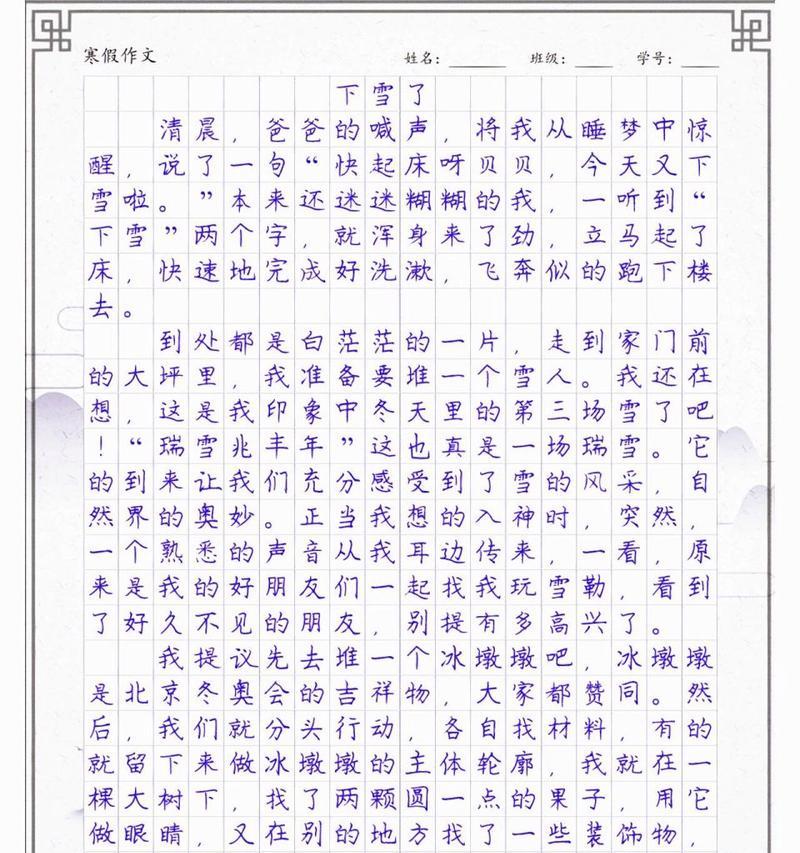 寒假作文 姓名：______ 班级：____ 学号：____
下雪了
清晨，爸爸的喊声，将我从睡梦中惊
醒，说了一句“快起床呀贝贝，今天又下
雪啦。”本来还迷迷糊糊的我，一听到“
下雪”两个字，就浑身来了劲，立马起了
床，快速地完成好洗漱，飞奔似的跑下楼
去。
到处都是白茫茫的一片，走到家门前
的大坪里，我准备要堆一个雪人。我还在
想，这是我印象中冬天里的第三场雪了吧
！“瑞雪兆丰年”这也真是一场瑞雪。它
的到来让我们充分感受到了雪的风采，自
然界的奥妙。正当我想的入神时，突然，
一个熟悉的声音从我耳边传来，一看，原
来是我的好朋友们一起找我玩雪勒，看到
了好久不见的朋友，别提有多高兴了。
我提议先去堆一个冰墩墩吧，冰墩墩
是北京冬奥会的吉祥物，大家都赞同。然
后，我们就分头行动，各自找材料，有的
就留下来做冰墩墩的主体轮廓，我就在一
棵大树下，找了两颗圆一点的果子，用它
做眼睛，又在别的地方找了一些装饰物，